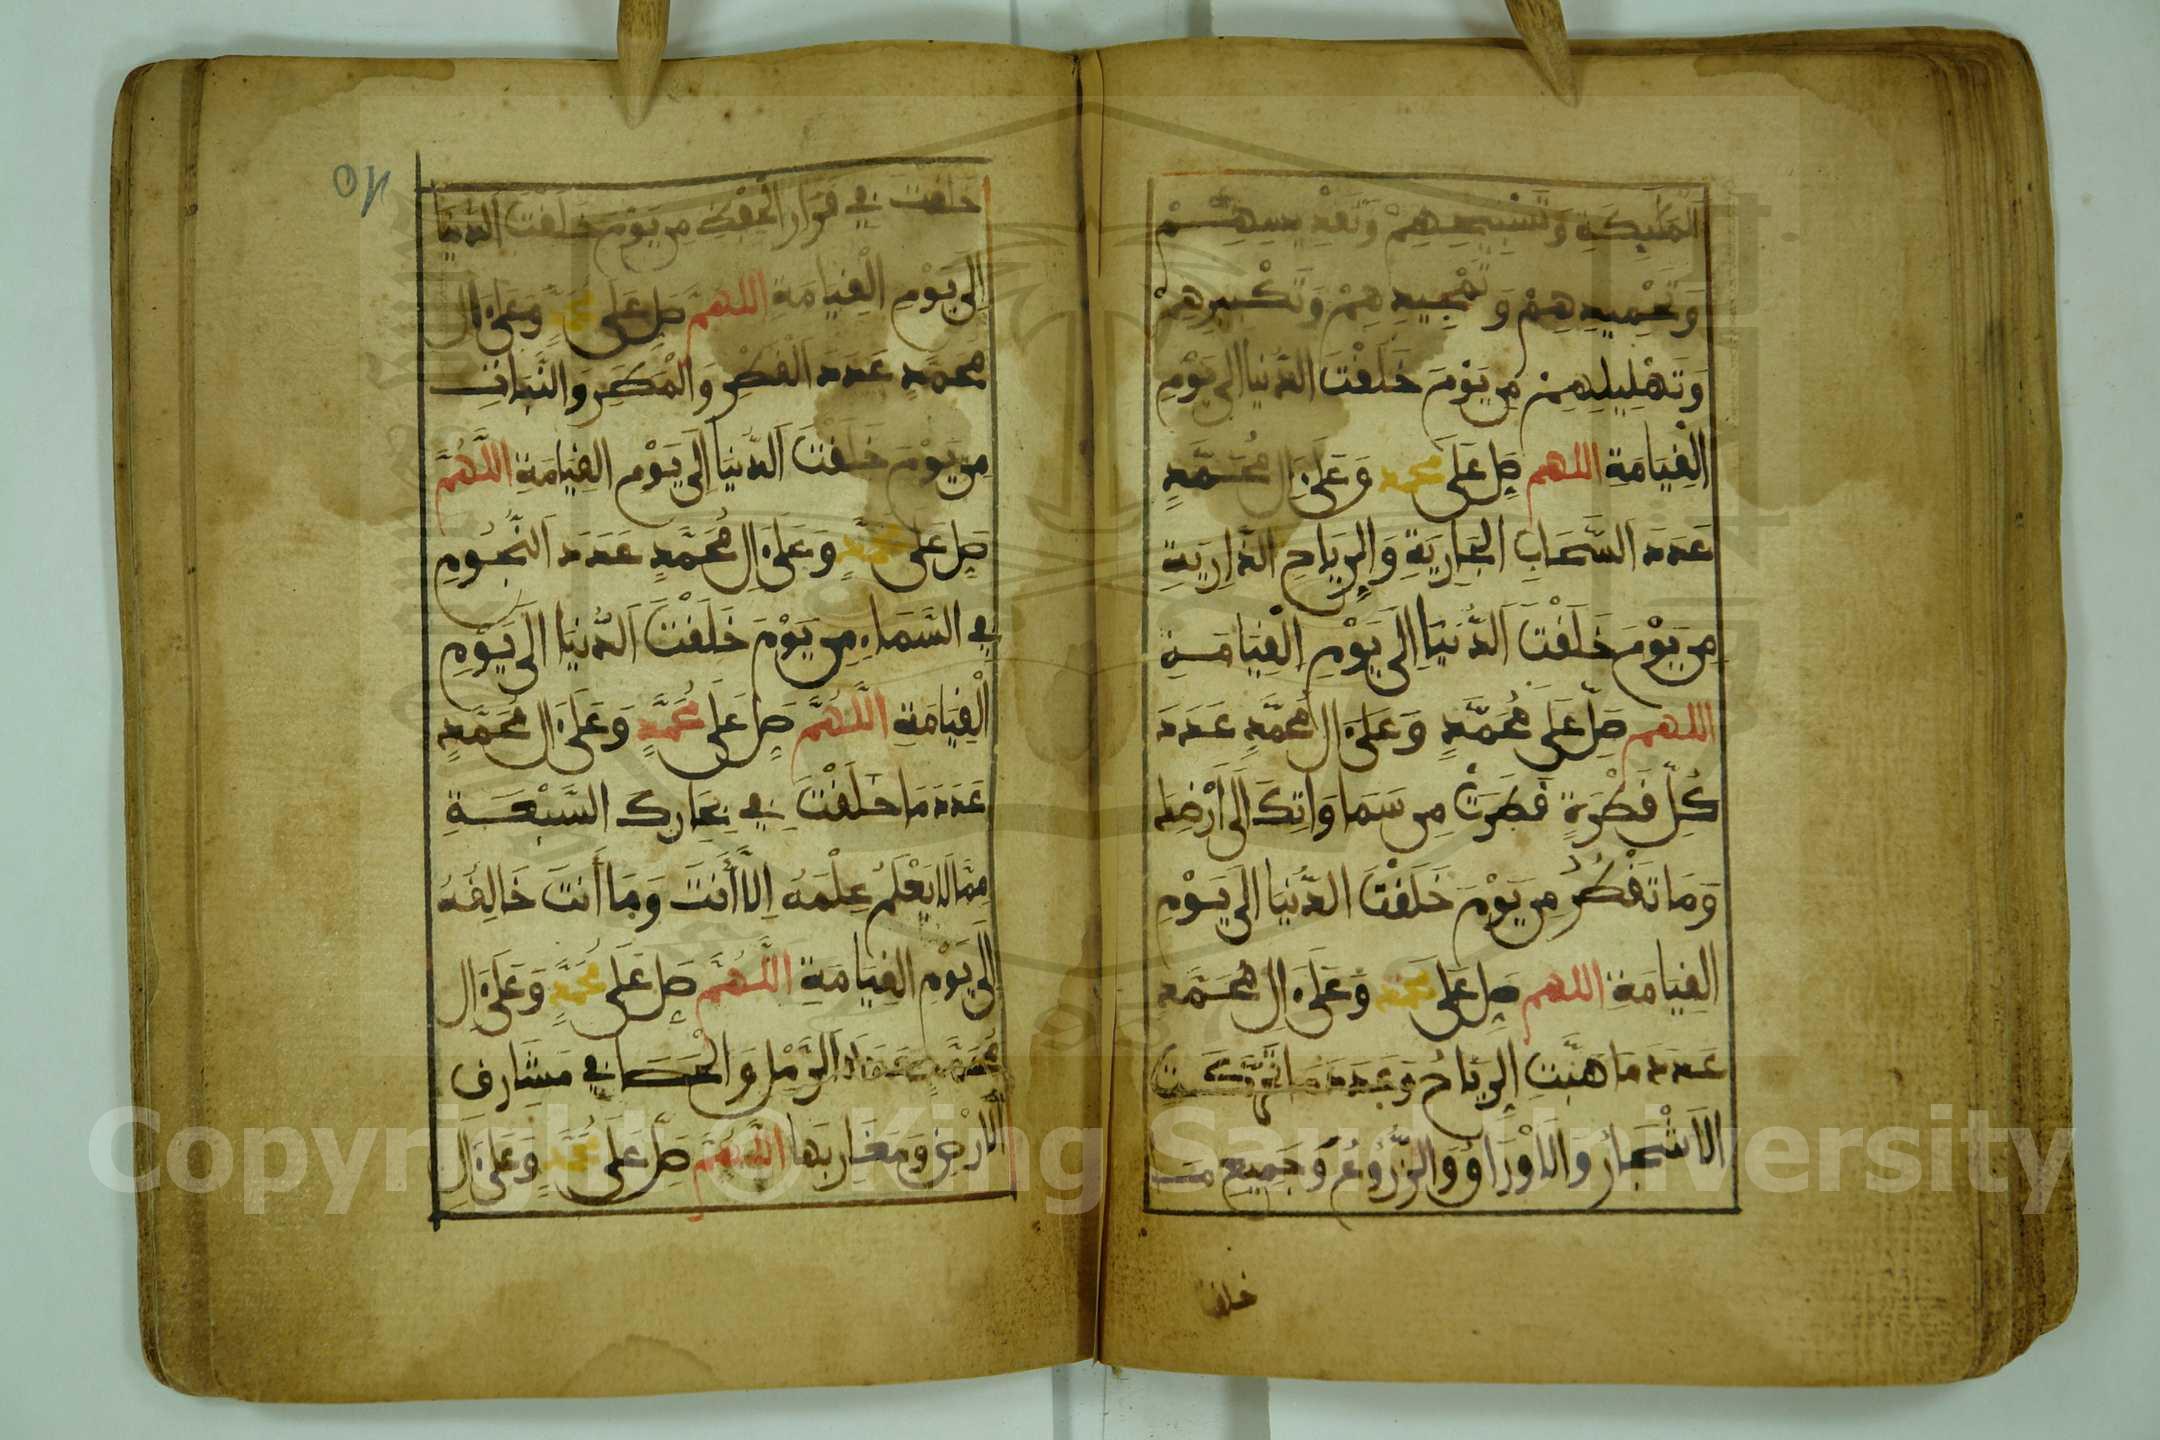 الملئكة وتسبيحهم وتقديسهم
وتحميدهم وتمجيدهم وتكبيرهم
وتهليلهم من يوم خلقت الدنيا الى يوم
القيامة اللهم صل على محمد وعلى ال محمد
عدد السحاب الجارية والرياح الذارية
من يوم خلقت الدنيا الى يوم القيامة
اللهم صل على محمد وعلى ال محمد عدد
كل قطرة قطرت من سماواتك الى أرضك
وما تقطر من يوم خلقت الدنيا الى يوم
القيامة اللهم صل على محمد وعلى ال محمد
عدد ما هبت الرياح وعدد ما تحركت
الاشجار والاوراق والزروع وجميع ما
خلقت
خلقت في قرار الحفظ من يوم خلقت الدنيا
الى يوم القيامة اللهم صل على محمد وعلى ال
محمد عدد القطر والمطر والنبات
من يوم خلقت الدنيا الى يوم القيامة اللهم
صل على محمد وعلى ال محمد عدد النجوم
في السماء من يوم خلقت الدنيا الى يوم
القيامة اللهم صل على محمد وعلى ال محمد
عدد ما خلقت في بحارك السبعة
مما لا يعلم علمه الا أنت وما أنت خالقه
الى يوم القيامة اللهم صل على محمد وعلى ال
محمد عدد الرمل والحصا في مشارق
الارض ومغاربها اللهم صل على محمد وعلى ال
Copyright © King Saud University